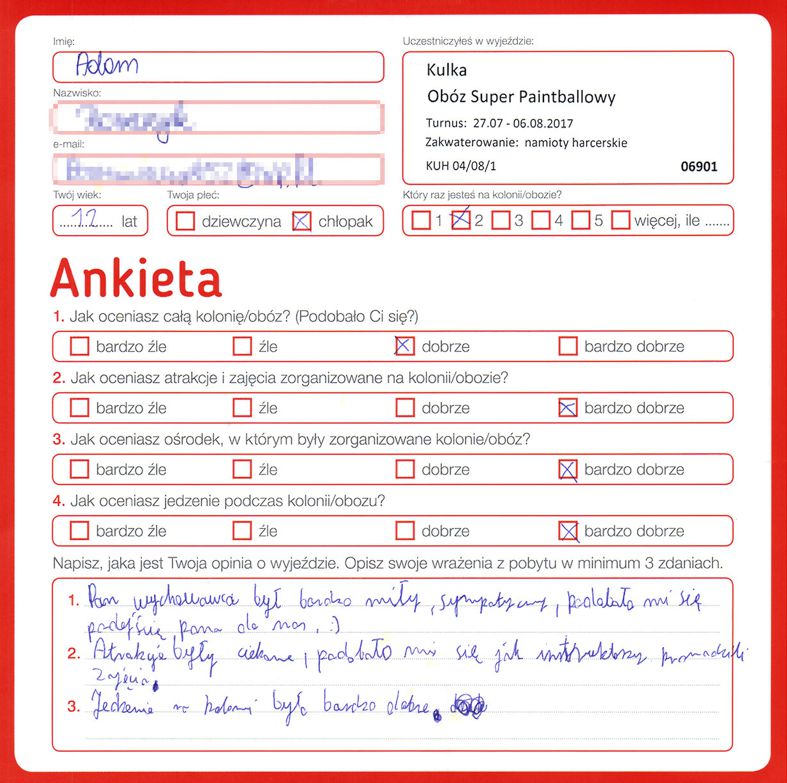 Imię:
Adam
Nazwisko:
e-mail:
Twój wiek:
12 lat
Twoja płeć:
dziewczyna chłopak
Uczestniczyłeś w wyjeździe:
Kulka
Obóz Super Paintballowy
Turnus: 27.07 - 06.08.2017
Zakwaterowanie: namioty harcerskie
KUH 04/08/1 06901
Który raz jesteś na kolonii/obozie?
1 2 3 4 5 więcej, ile .......
Ankieta
1. Jak oceniasz całą kolonię/obóz? (Podobało Ci się?)
bardzo źle źle dobrze bardzo dobrze
2. Jak oceniasz atrakcje i zajęcia zorganizowane na kolonii/obozie?
bardzo źle źle dobrze bardzo dobrze
3. Jak oceniasz ośrodek, w którym były zorganizowane kolonie/obóz?
bardzo źle źle dobrze bardzo dobrze
4. Jak oceniasz jedzenie podczas kolonii/obozu?
bardzo źle źle dobrze bardzo dobrze
Napisz, jaka jest Twoja opinia o wyjeździe. Opisz swoje wrażenia z pobytu w minimum 3 zdaniach.
1. Pan wychowawca był bardzo miły, sympatyczny, podobało mi się
podejście pana do nas, :)
2. Atrakcje były ciekawe, podobało mi się jak instruktorzy prowadzili
zajęcia.
3. Jedzenie na kolonii było bardzo dobre.